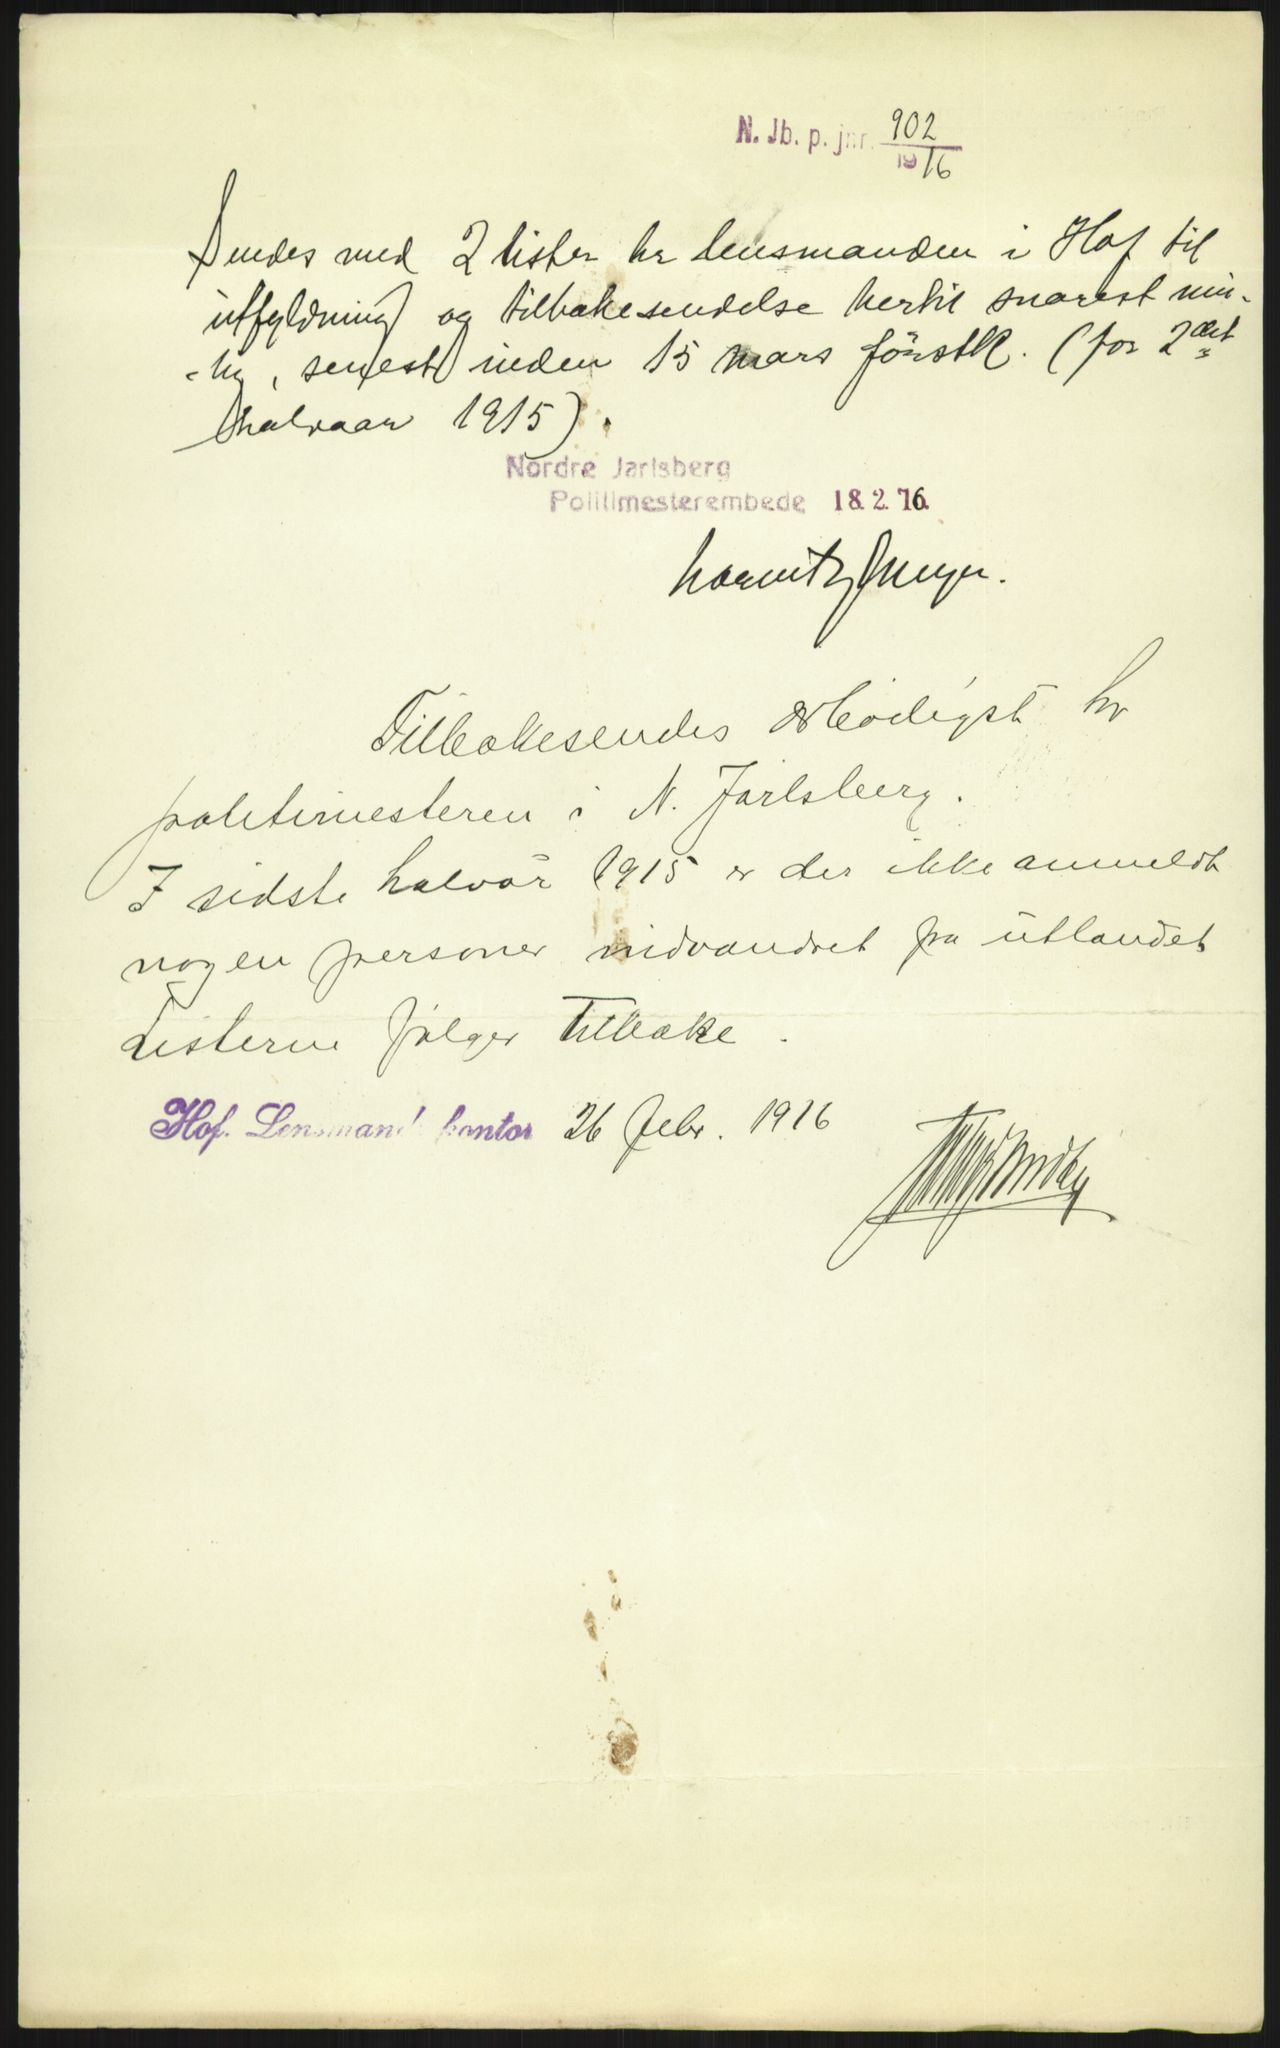 N. Jb. p. jnr. 902
1916
Sendes med 2 lister hr lensmanden i Hof til
utfyldning og tilbakesendelse hertil snarest mu-
-lig, senest inden 15 mars førstk. (for 2det
halvaar 1915).
Nordre Jarlsberg
Politimesterembede 18.2.16.
Tilbakesendes ærbødigst hr
politimesteren i N. Jarlsberg.
I sidste halvår 1915 er der ikke anmeldt
nogen personer indvandret fra utlandet
Listerne følger tilbake.
Hof. Lensmand kontor 26 febr. 1916